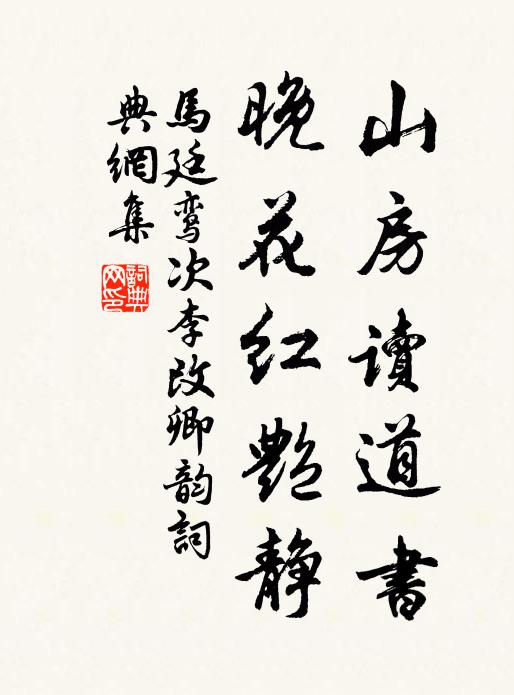 山房讀道書
晚花红艷静
馬廷鸾次李改卿韵詞
典網集
詞典网印